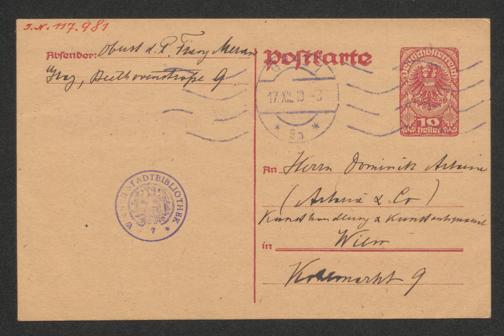 I. N. 117.981
Absender: Oberst d. R. Franz Meran
Graz, Beethovenstraße 9
Postkarte
17.XII.19
8a
Deutschösterreich
10
Heller
STADTBIBLIOTHEK
An Herrn Dominik Artaria
(Artaria & Co)
Kunsthandlung & Kunstantiquariat
in Wien
Kohlmarkt 9